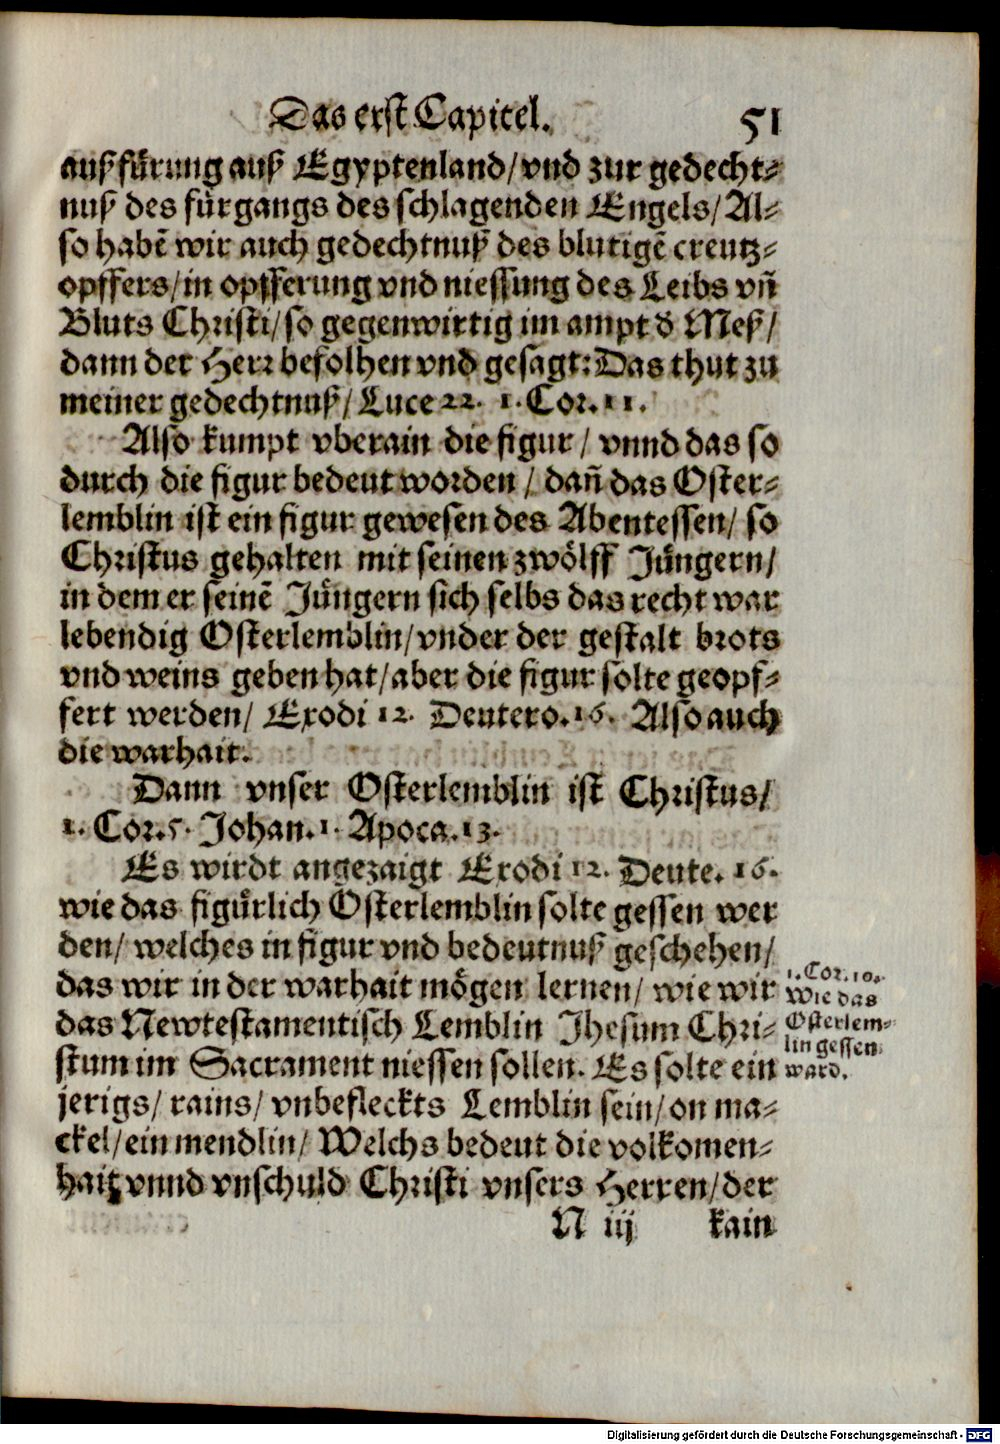 Das erst Capitel. 51
außfürung auß Egyptenland/ vnd zur gedecht-
nuß des fürgangs des schlagenden Engels/ Al-
so habē wir auch gedechtnuß des blutigē creutz-
opffers/ in opfferung vnd niessung des Leibs vñ
Bluts Christi/ so gegenwirtig im ampt d Meß/
dann der Herr befolhen vnd gesagt: Das thut zu
meiner gedechtnuß/ Luce 22. 1. Cor. 11.
Also kumpt vberain die figur/ vnnd das so
durch die figur bedeut worden/ dañ das Oster-
lemblin ist ein figur gewesen des Abentessen/ so
Christus gehalten mit seinen zwölff Jüngern/
in dem er seinē Jüngern sich selbs das recht war
lebendig Osterlemblin/ vnder der gestalt brots
vnd weins geben hat/ aber die figur solte geopf-
fert werden/ Exodi 12. Deutero. 16. Also auch
die warhait.
Dann vnser Osterlemblin ist Christus/
1. Cor. 5. Johan. 1. Apoca. 13.
Es wirdt angezaigt Exodi 12. Deute. 16.
wie das figürlich Osterlemblin solte gessen wer
den/ welches in figur vnd bedeutnuß geschehen/
das wir in der warhait mögen lernen/ wie wir
das Newtestamentisch Lemblin Jhesum Chri-
stum im Sacrament niessen sollen. Es solte ein
jerigs/ rains/ vnbefleckts Lemblin sein/ on ma-
ckel/ ein mendlin/ Welchs bedeut die volkomen-
hait vnnd vnschuld Christi vnsers Herren/ der
N iij kain
1. Cor. 10.
Wie das
Osterlem-
lin gessen
ward.
Digitalisierung gefördert durch die Deutsche Forschungsgemeinschaft - DFG